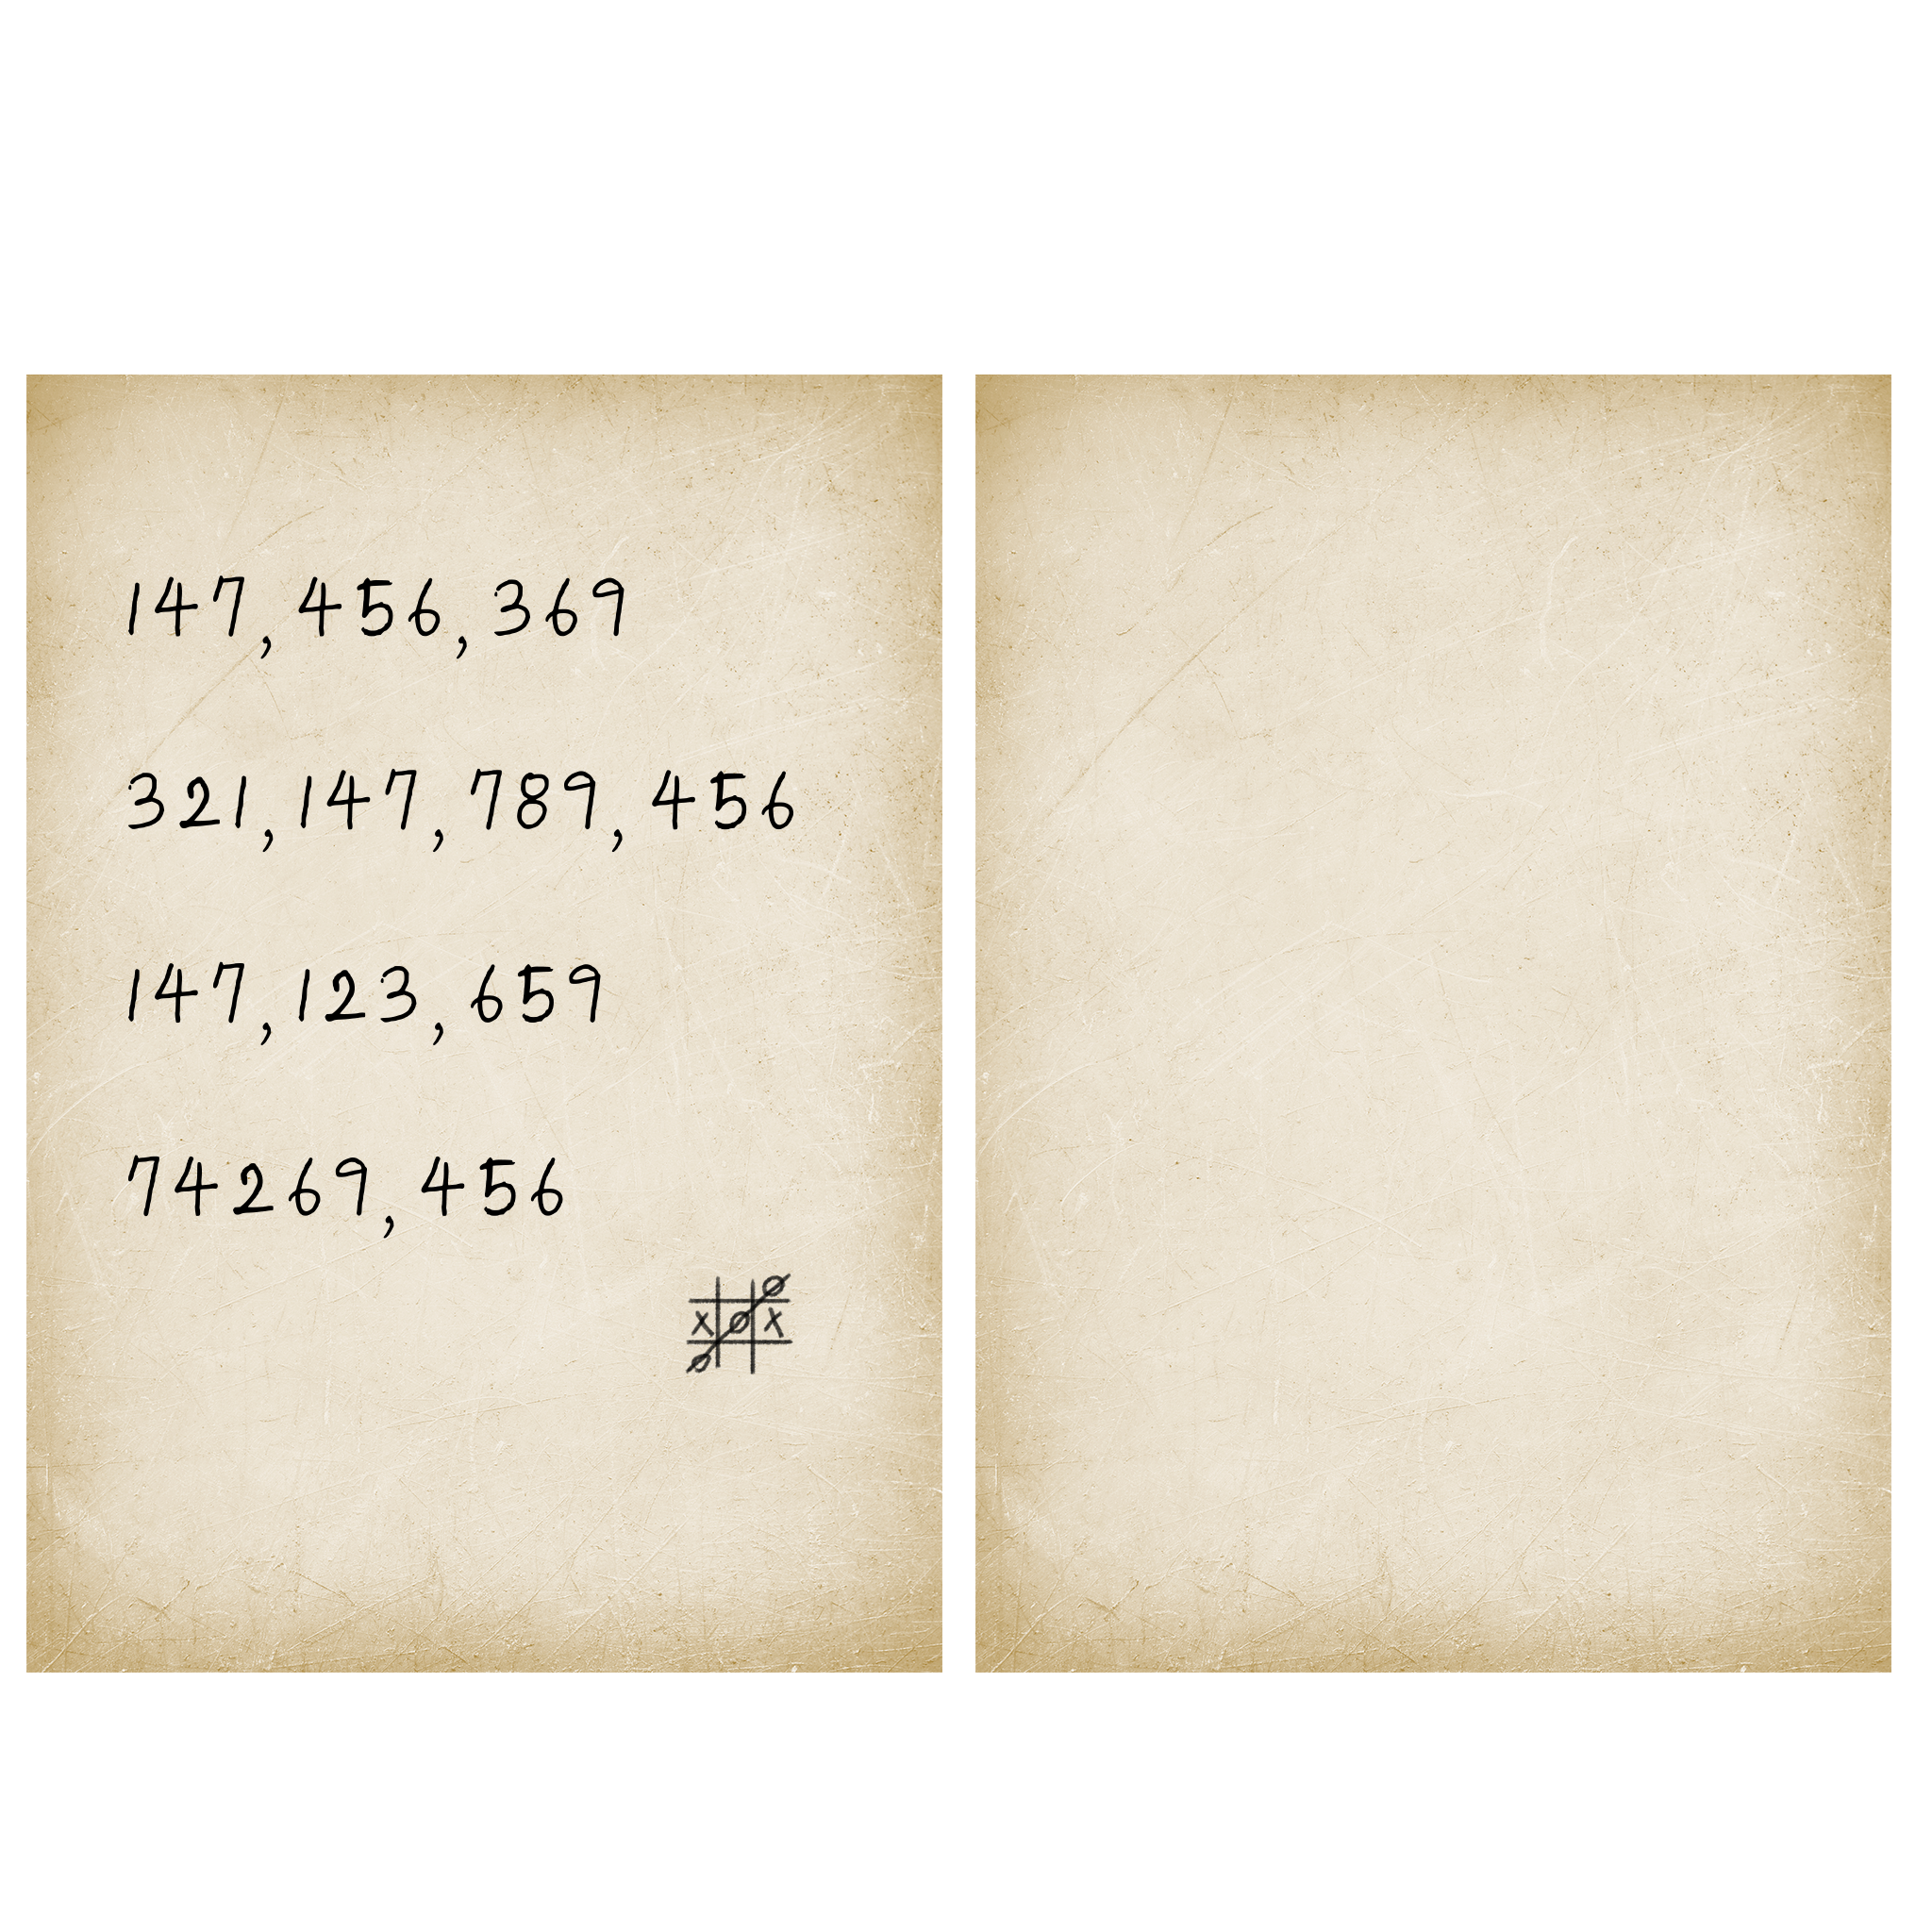 147, 456, 369
321, 147, 789, 456
147, 123, 659
74269, 456